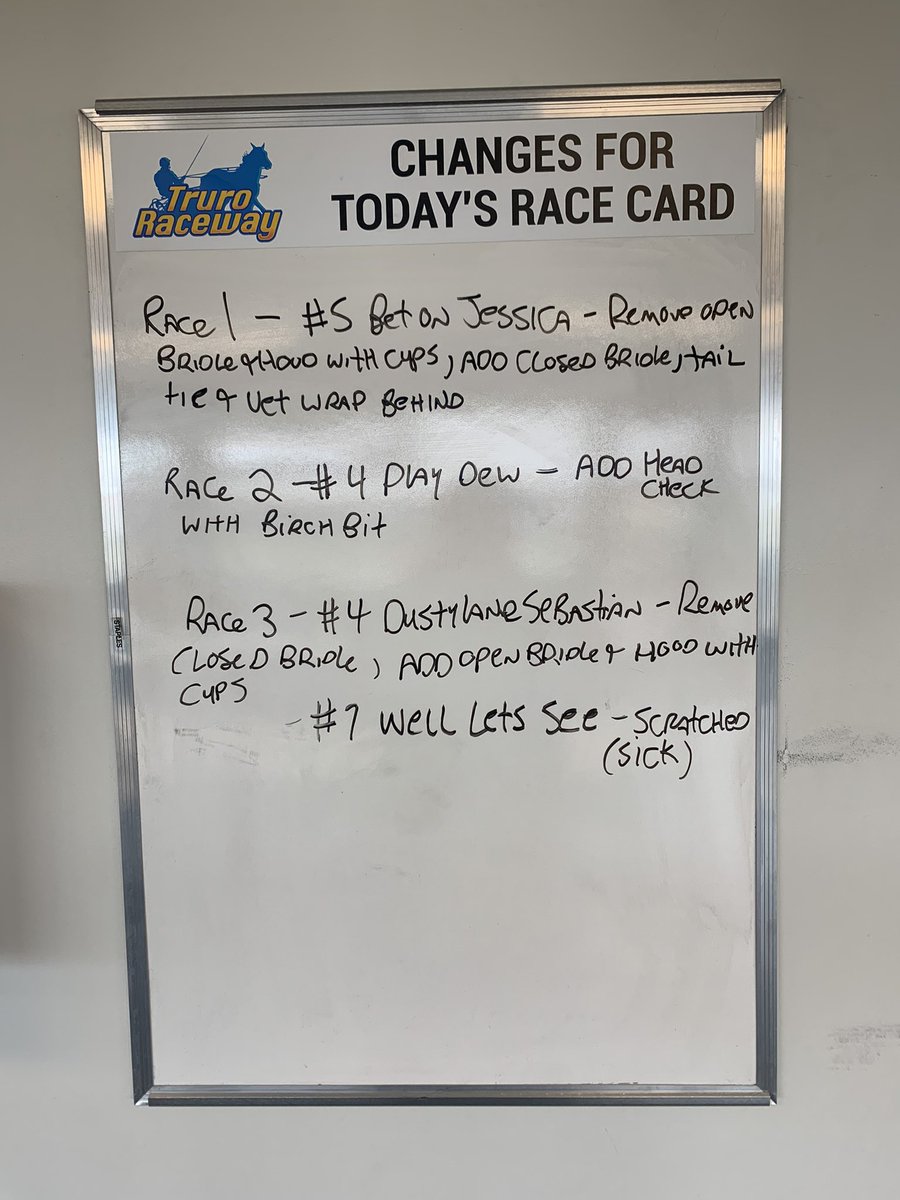 Truro
Raceway
CHANGES FOR
TODAY'S RACE CARD
RACE 1 - #5 Bet ON JESSICA - Remove OPEN
BRIDLE & HOOD WITH CUPS, ADD CLOSED BRIDLE, TAIL
tie & Vet WRAP BEHIND
RACE 2 - #4 PLAY DEW - ADD HEAD
CHECK
WITH BIRCH Bit
RACE 3 - #4 DUSTYLANE SEBASTIAN - Remove
CLOSED BRIDLE, ADD OPEN BRIDLE & HOOD WITH
CUPS
- #7 Well Lets See - SCRATCHED
(SICK)
STAPLES